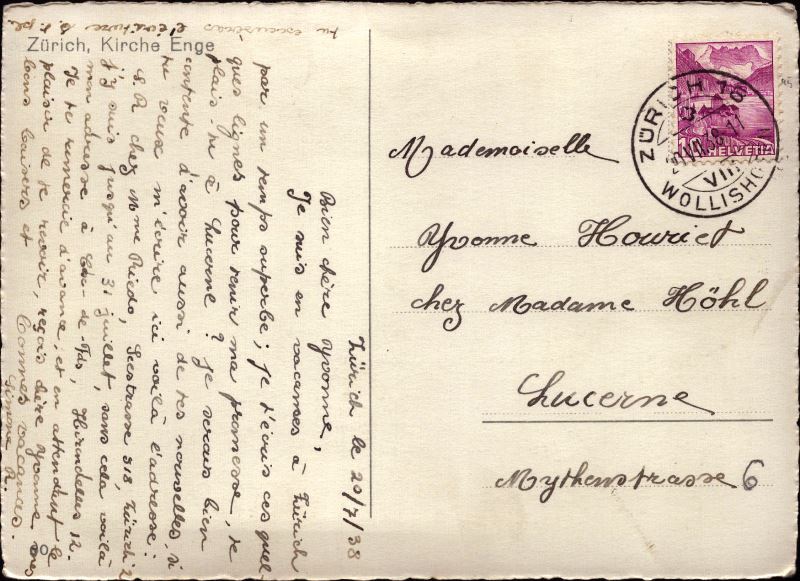 Zürich, Kirche Enge
Zürich le 20/7/38
Bien chère Yvonne,
Je suis en vacances à Zürich
par un temps superbe; je t'écris ces quel-
ques lignes pour tenir ma promesse, te
plais-tu à Lucerne? Je serais bien
contente d'avoir aussi de tes nouvelles, si
tu veux m'écrire ici voilà l'adresse:
S. R chez Mme Riedo, Seestrasse 318, Zürich 2
J'y suis jusqu'au 31 juillet, sans cela voilà
mon adresse à Chx-de-Fds, Hirondelles 12.
Je te remercie d'avance, et en attendant le
plaisir de te revoir, reçois chère Yvonne, mes
bons baisers et Bonnes vacances.
Simone R.
tu excuseras
l'écriture s. t. pl.
Mademoiselle
Yvonne Houriet
chez Madame Höhl
Lucerne
Mythenstrasse 6
ZÜRICH 16
WOLLISHOFEN
VIII
10 HELVETIA